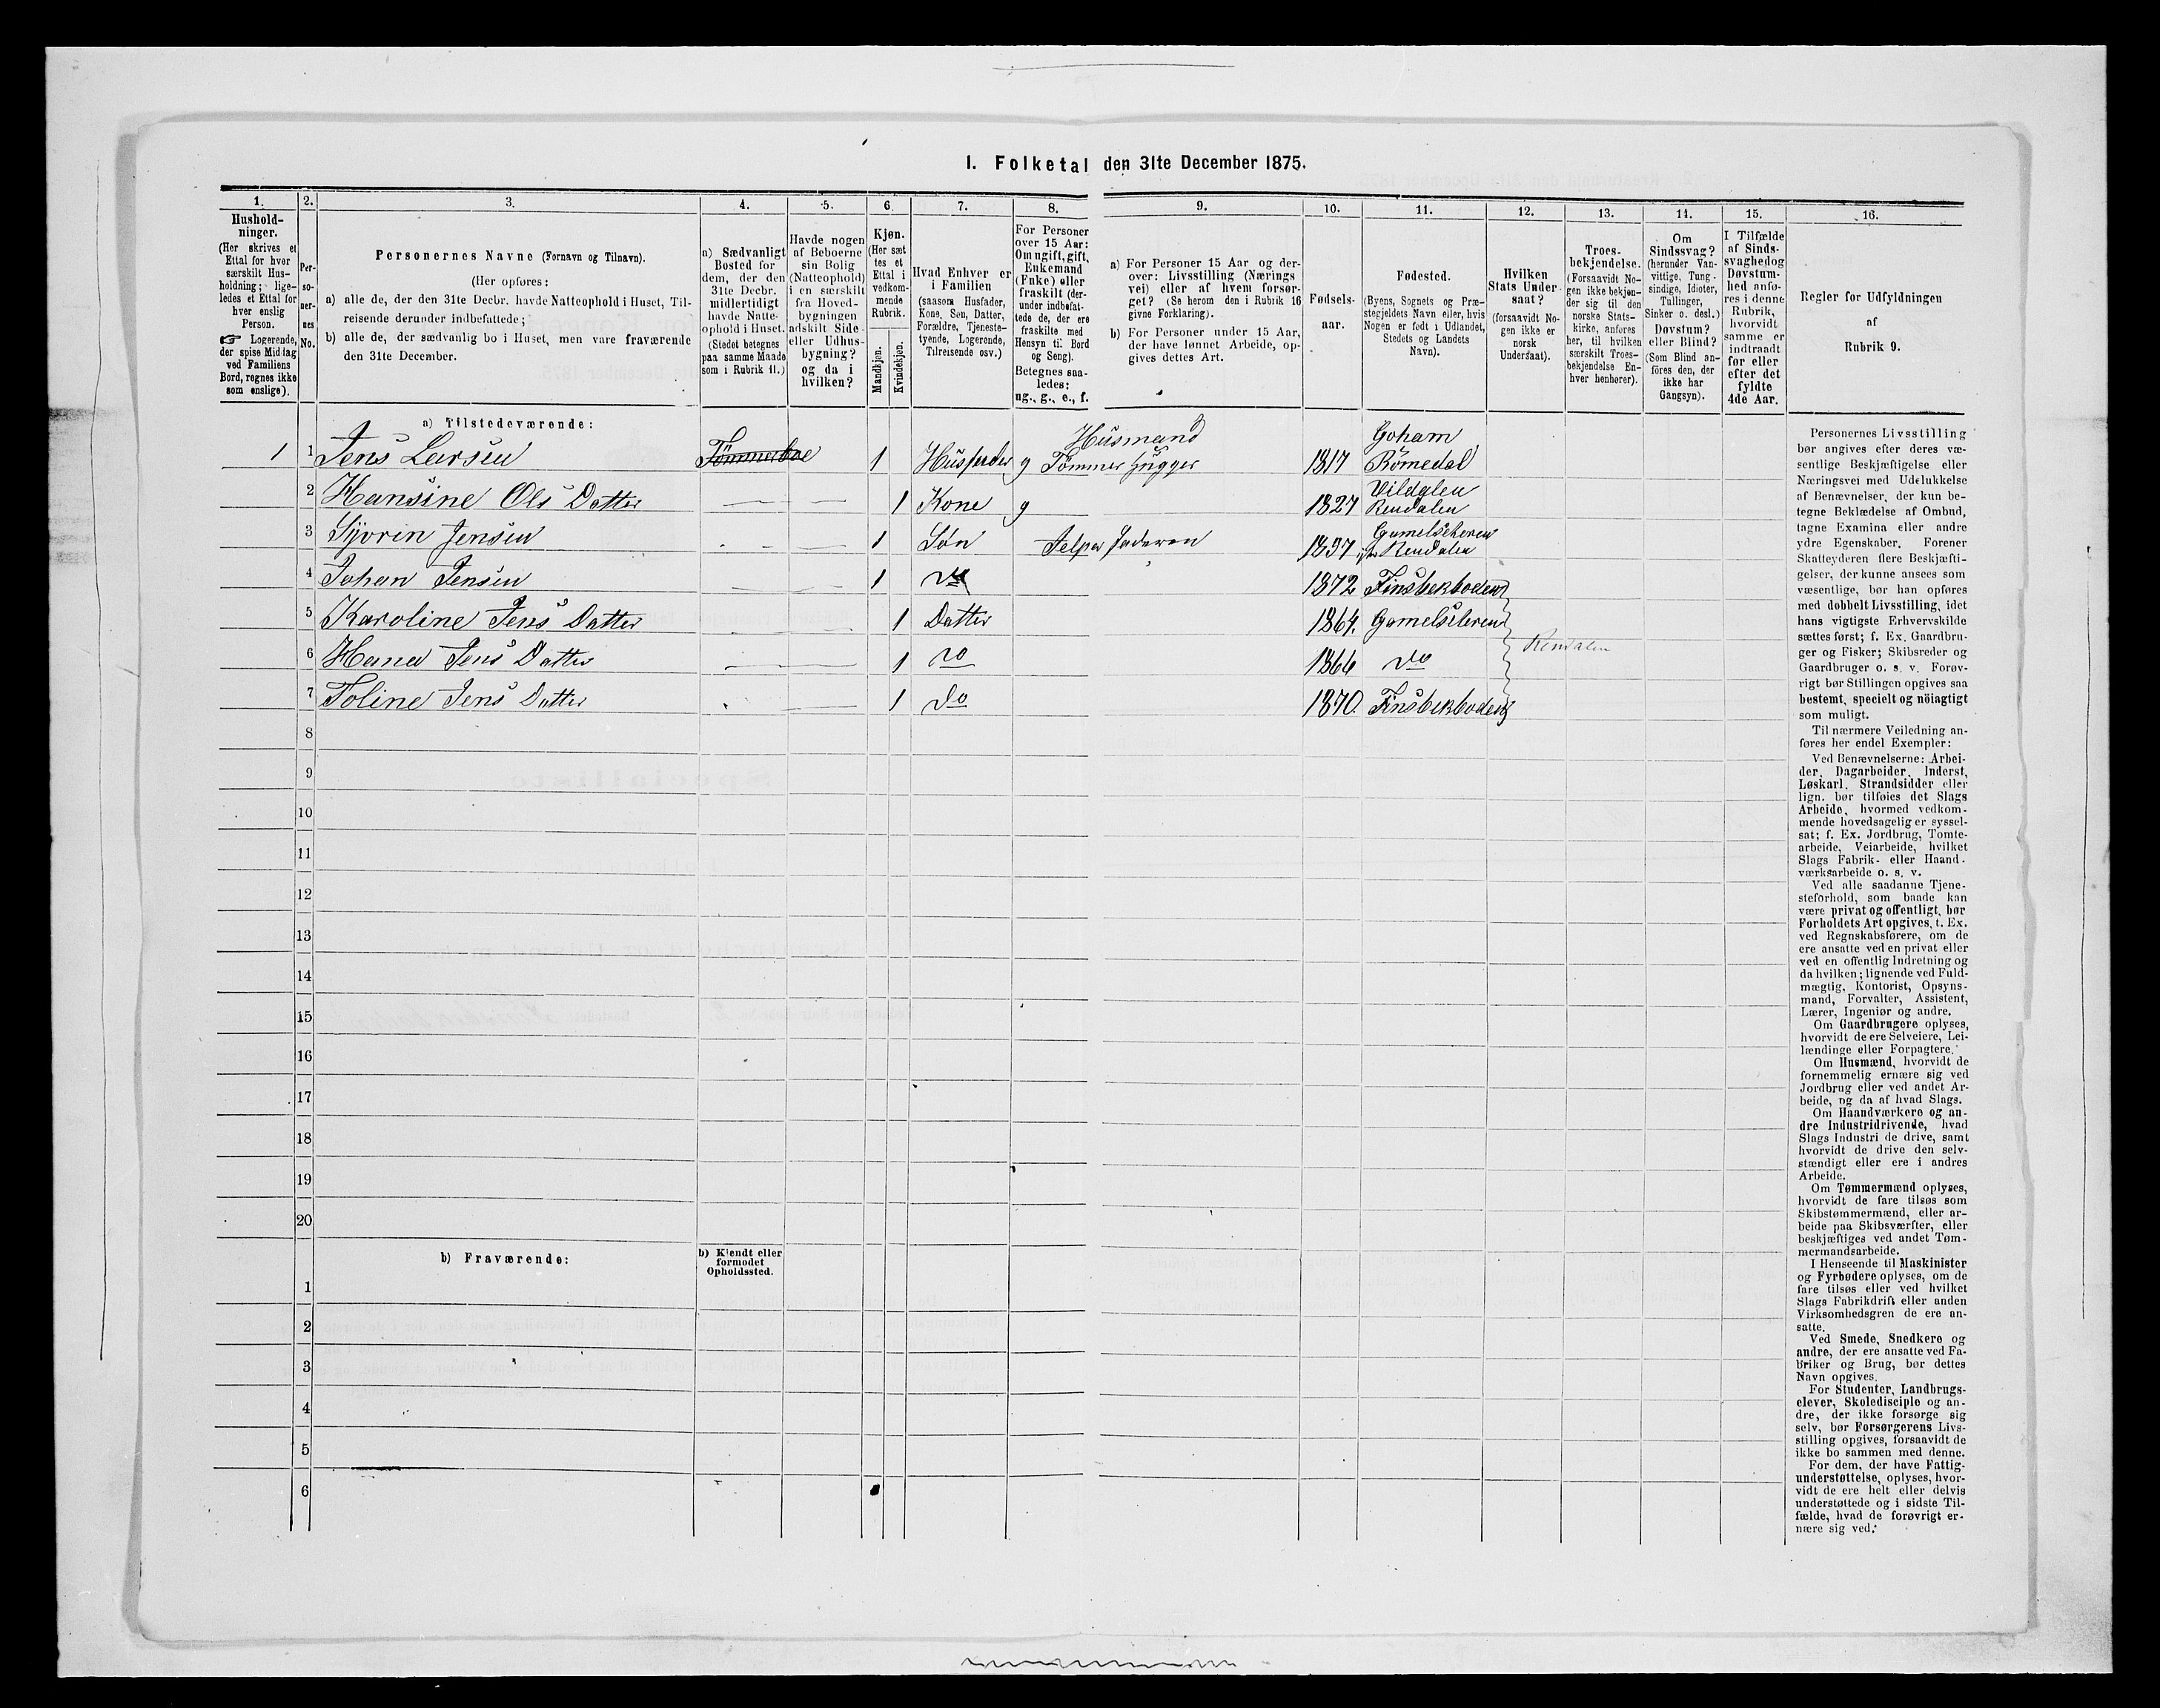 I. Folketal den 31te December 1875.
1. 2. 3. 4. 5. 6. 7. 8. 9. 10. 11. 12. 13. 14. 15. 16.
Hushold-
ninger.
(Her skrives et
Ettal for hver
særskilt Hus-
holdning; lige-
ledes et Ettal for
hver enslig
Person.
☞ Logerende,
der spise Middag
ved Familiens
Bord, regnes ikke
som enslige).
Per-
so-
ner-
nes
No.
Personernes Navne (Fornavn og Tilnavn).
(Her opføres:
a) alle de, der den 31te Decbr. havde Natteophold i Huset, Til-
reisende derunder indbefattede;
b) alle de, der sædvanlig bo i Huset, men vare fraværende
den 31te December.
a) Sædvanligt
Bosted for
dem, der den
31te Decbr.
midlertidigt
havde Natte-
ophold i Huset.
(Stedet betegnes
paa samme Maade
som i Rubrik 11.)
Havde nogen
af Beboerne
sin Bolig
(Natteophold)
i en særskilt
fra Hoved-
bygningen
adskilt Side-
eller Udhus-
bygning?
og da i
hvilken?
Kjøn.
(Her sæt
tes et
Ettal i
vedkom-
mende
Rubrik.
Mandkjøn.
Kvindekjøn.
Hvad Enhver er
i Familien
(saasom Husfader,
Kone, Søn, Datter,
Forældre, Tjeneste-
tyende, Logerende,
Tilreisende osv.)
For Personer
over 15 Aar:
Om ugift, gift,
Enkemand
(Enke) eller
fraskilt (der-
under indbefat-
tede de, der ere
fraskilte med
Hensyn til Bord
og Seng).
Betegnes saa-
ledes:
ug., g., e., f.
a) For Personer 15 Aar og der-
over: Livsstilling (Nærings
vei) eller af hvem forsør-
get? (Se herom den i Rubrik 16
givne Forklaring).
b) For Personer under 15 Aar,
der have lønnet Arbeide, op-
gives dettes Art.
Fødsels-
aar.
Fødested.
(Byens, Sognets og Præ-
stegjeldets Navn eller, hvis
Nogen er født i Udlandet,
Stedets og Landets
Navn).
Hvilken
Stats Under-
saat?
(forsaavidt No-
gen ikke er
norsk
Undersaat).
Troes-
bekjendelse.
(Forsaavidt No-
gen ikke bekjen-
der sig til den
norske Stats-
kirke, anføres
her, til hvilken
særskilt Troes-
bekjendelse En-
hver henhører).
Om
Sindssvag?
(herunder Van-
vittige, Tung-
sindige, Idioter,
Tullinger,
Sinker o. desl.)
Døvstum?
eller Blind?
(Som Blind an-
føres den, der
ikke har
Gangsyn).
I Tilfælde
af Sinds-
svaghed og
Døvstum-
hed anfø-
res i denne
Rubrik,
hvorvidt
samme er
indtraadt
før eller
efter det
fyldte
4de Aar.
Regler for Udfyldningen
af
Rubrik 9.
a) Tilstedeværende:
Husmand
1 1 Jens Larsen 1 Husfader g Tömmer Hugger 1817 Römedal
2 Hansine Ols Datter 1 Kone g 1827 Rendalen
3 Jensen 1 Søn Rendalen
4 Johan Jensen 1 do 1872 Finsbekboden
5 Karoline Jens Datter 1 Datter 1864.
6 Jens Datter 1 do 1866 do Rendalen
7 Toline Jens Datter 1 do 1870. Finsbekboden
8
9
10
11
12
13
14
15
16
17
18
19
20
b) Fraværende:
b) Kjendt eller
formodet
Opholdssted.
1
2
3
4
5
6
Personernes Livsstilling
bør angives efter deres væ-
sentlige Beskjæftigelse eller
Næringsvei med Udelukkelse
af Benævnelser, der kun be-
tegne Beklædelse af Ombud,
tagne Examina eller andre
ydre Egenskaber. Forener
Skatteyderen flere Beskjæfti-
gelser, der kunne ansees som
væsentlige, bør han opføres
med dobbelt Livsstilling, idet
hans vigtigste Erhvervskilde
sættes først; f. Ex. Gaardbru-
ger og Fisker; Skibsreder og
Gaardbruger o. s. v. Forøv-
rigt bør Stillingen opgives saa
bestemt, specielt og nöiagtigt
som muligt.
Til nærmere Veiledning an-
føres her endel Exempler:
Ved Benævnelserne: Arbei-
der, Dagarbeider, Inderst,
Løskarl, Strandsidder eller
lign. bør tilføies det Slags
Arbeide, hvormed vedkom-
mende hovedsagelig er syssel-
sat; f. Ex. Jordbrug, Tomte-
arbeide, Veiarbeide, hvilket
Slags Fabrik- eller Haand-
værksarbeide o. s. v.
Ved alle saadanne Tjene-
steforhold, som baade kan
være privat og offentligt, bør
Forholdets Art opgives, t. Ex.
ved Regnskabsførere, om de
ere ansatte ved en privat eller
ved en offentlig Indretning og
da hvilken; lignende ved Fuld-
mægtig, Kontorist, Opsyns-
mand, Forvalter, Assistent,
Lærer, Ingeniør og andre.
Om Gaardbrugere oplyses,
hvorvidt de ere Selveiere, Lei-
lændinge eller Forpagtere.
Om Husmænd, hvorvidt de
fornemmelig ernære sig ved
Jordbrug eller ved andet Ar-
beide, og da af hvad Slags.
Om Haandværkere og an-
dre Industridrivende, hvad
Slags Industri de drive, samt
hvorvidt de drive den selv-
stændigt eller ere i andres
Arbeide.
Om Tømmermænd oplyses,
hvorvidt de fare tilsøs som
Skibstømmermænd, eller ar-
beide paa Skibsværfter, eller
beskjæftiges ved andet Tøm-
mermandsarbeide.
I Henseende til Maskinister
og Fyrbødere oplyses, om de
fare tilsøs eller ved hvilket
Slags Fabrikdrift eller anden
Virksomhedsgren de ere an-
satte.
Ved Smede, Snedkere og
andre, der ere ansatte ved Fa-
briker og Brug, bør dettes
Navn opgives.
For Studenter, Landbrugs-
elever, Skoledisciple og an-
dre, der ikke forsørge sig
selv, bør Forsørgerens Livs-
stilling opgives, forsaavidt de
ikke bo sammen med denne.
For dem, der have Fattig-
understøttelse, oplyses, hvor-
vidt de ere helt eller delvis
understøttede og i sidste Til-
fælde, hvad de forøvrigt er-
nære sig ved.